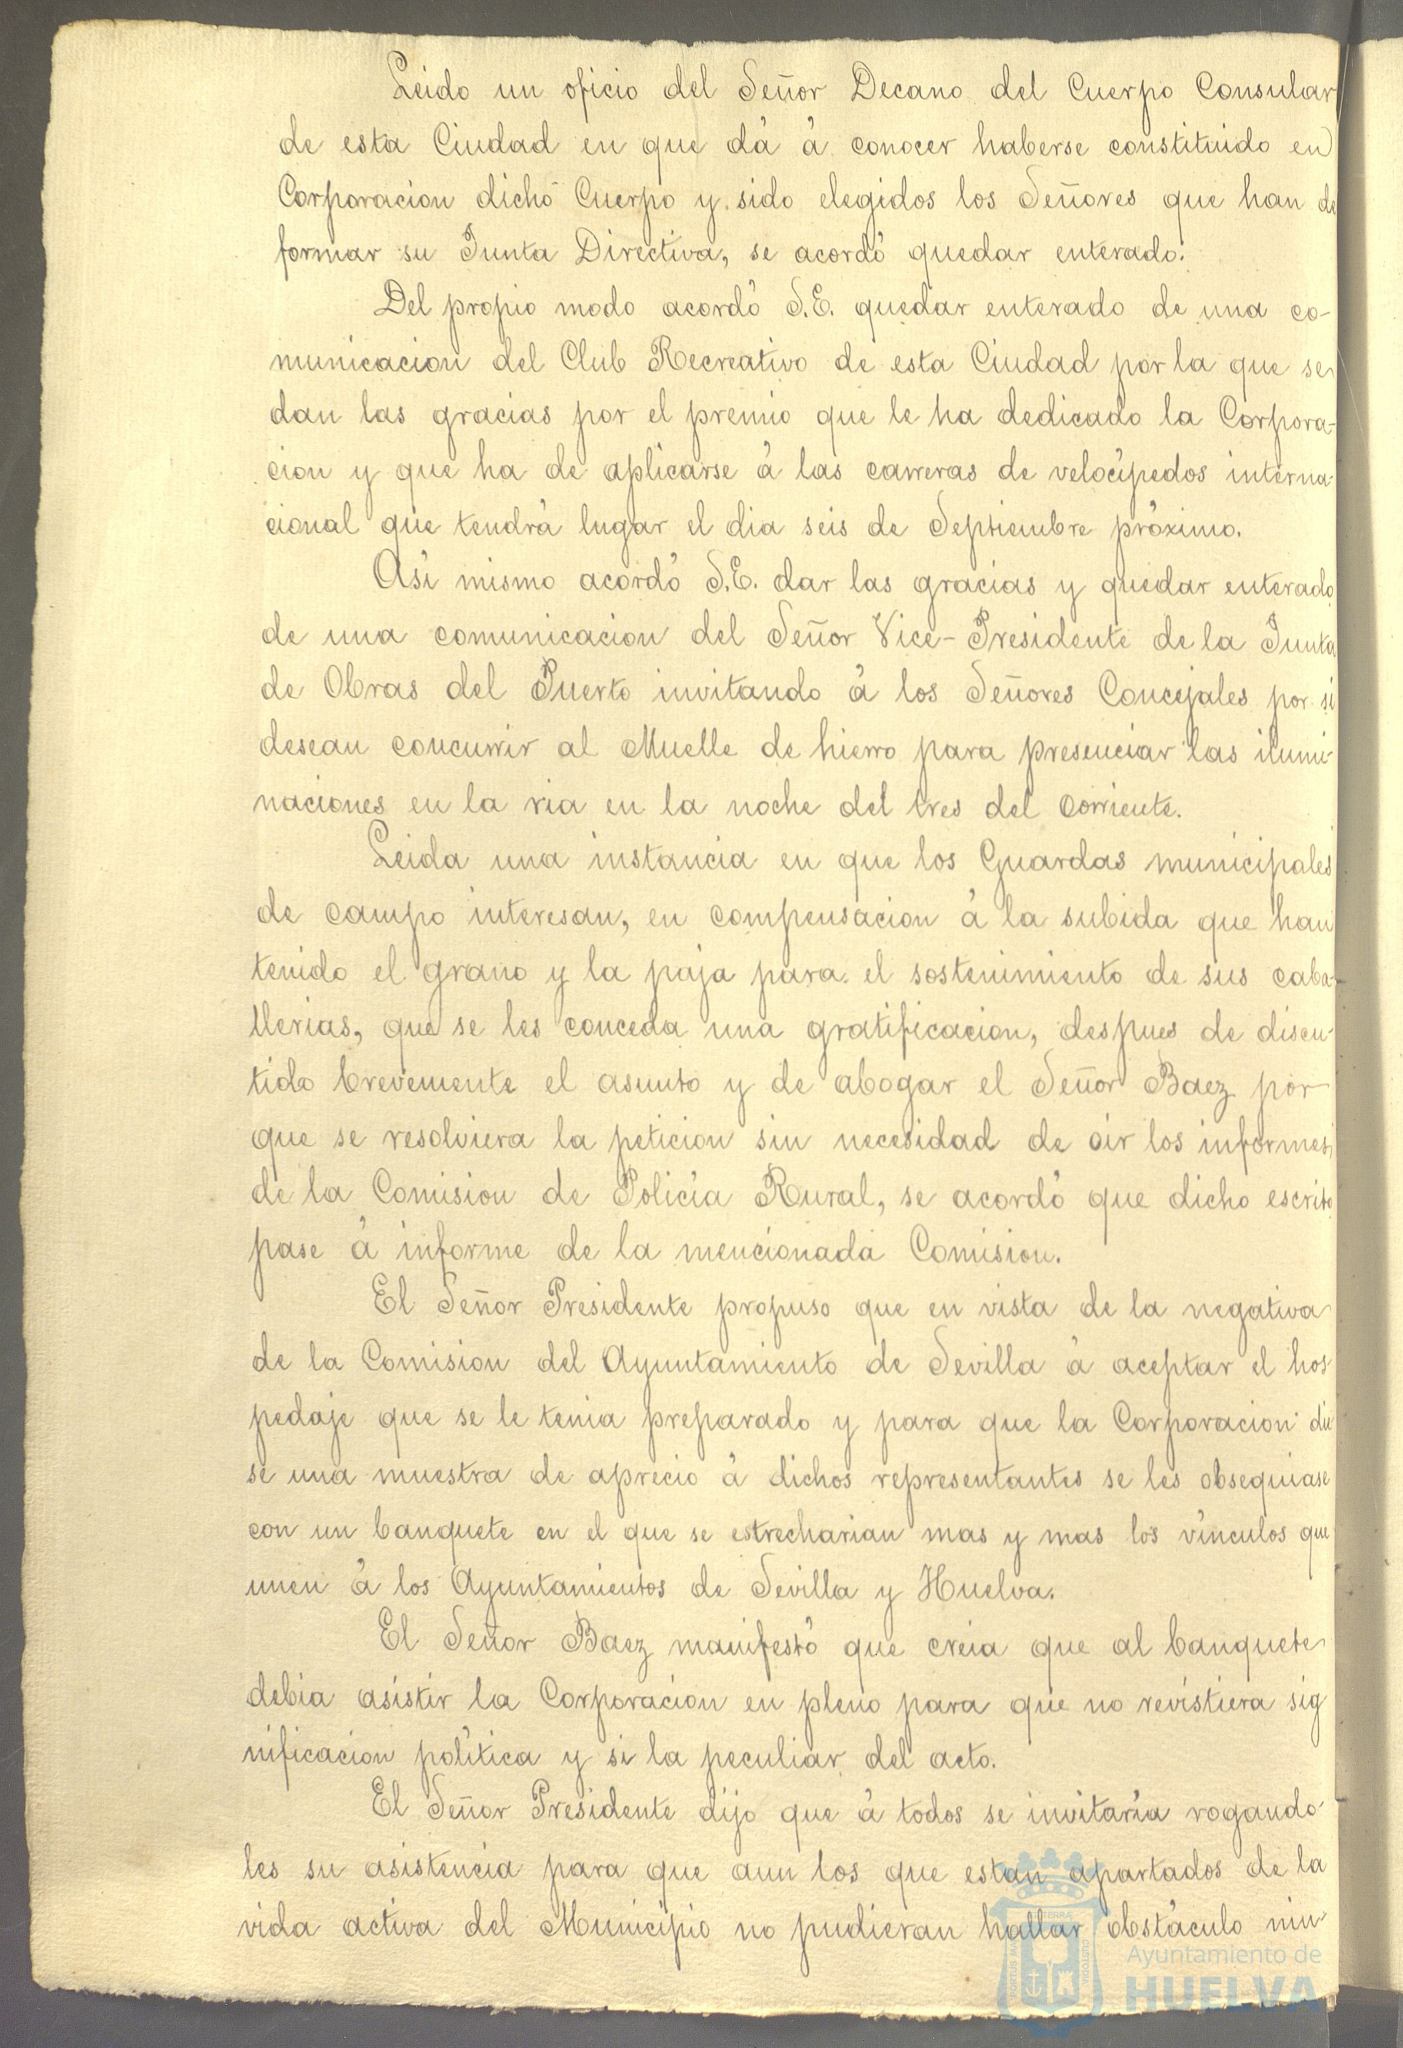 Leido un oficio del Señor Decano del Cuerpo Consular
de esta Ciudad en que dá á conocer haberse constituido en
Corporacion dicho Cuerpo y sido elegidos los Señores que han de
formar su Junta Directiva, se acordó quedar enterado.
Del propio modo acordó S.E. quedar enterado de una co-
municacion del Club Recreativo de esta Ciudad por la que se
dan las gracias por el premio que le ha dedicado la Corpora-
cion y que ha de aplicarse á las carreras de velocípedos interna-
cional que tendrá lugar el dia seis de Septiembre próximo.
Asi mismo acordó S.E. dar las gracias y quedar enterado
de una comunicacion del Señor Vice-Presidente de la Junta
de Obras del Puerto invitando á los Señores Concejales por si
desean concurrir al Muelle de hierro para presenciar las ilumi-
naciones en la ria en la noche del tres del corriente.
Leida una instancia en que los Guardas municipales
de campo interesan, en compensacion á la subida que han
tenido el grano y la paja para el sostenimiento de sus caba-
llerias, que se les conceda una gratificacion, despues de discu-
tido brevemente el asunto y de abogar el Señor Baez por
que se resolviera la peticion sin necesidad de oir los informes
de la Comision de Policía Rural, se acordó que dicho escrito
pase á informe de la mencionada Comision.
El Señor Presidente propuso que en vista de la negativa
de la Comision del Ayuntamiento de Sevilla á aceptar el hos
pedaje que se le tenia preparado y para que la Corporacion die
se una muestra de aprecio á dichos representantes se les obsequiase
con un banquete en el que se estrecharian mas y mas los vínculos que
unen á los Ayuntamientos de Sevilla y Huelva.
El Señor Baez manifestó que creia que al banquete
debia asistir la Corporacion en pleno para que no revistiera sig
nificacion política y si la peculiar del acto.
El Señor Presidente dijo que á todos se invitaría rogando-
les su asistencia para que aun los que estan apartados de la
vida activa del Municipio no pudieran hallar obstáculo nin-
Ayuntamiento de
HUELVA